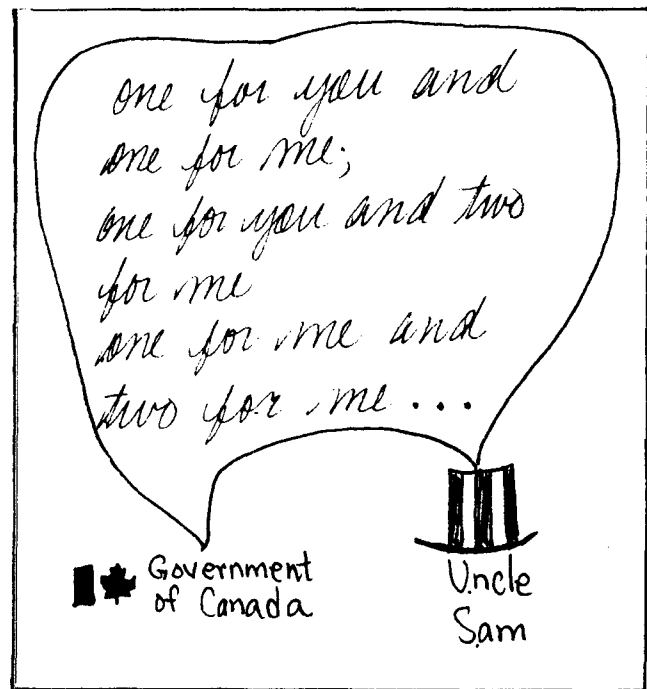 one for you and
one for me;
one for you and two
for me
one for me and
two for me...
Government
of Canada
Uncle
Sam